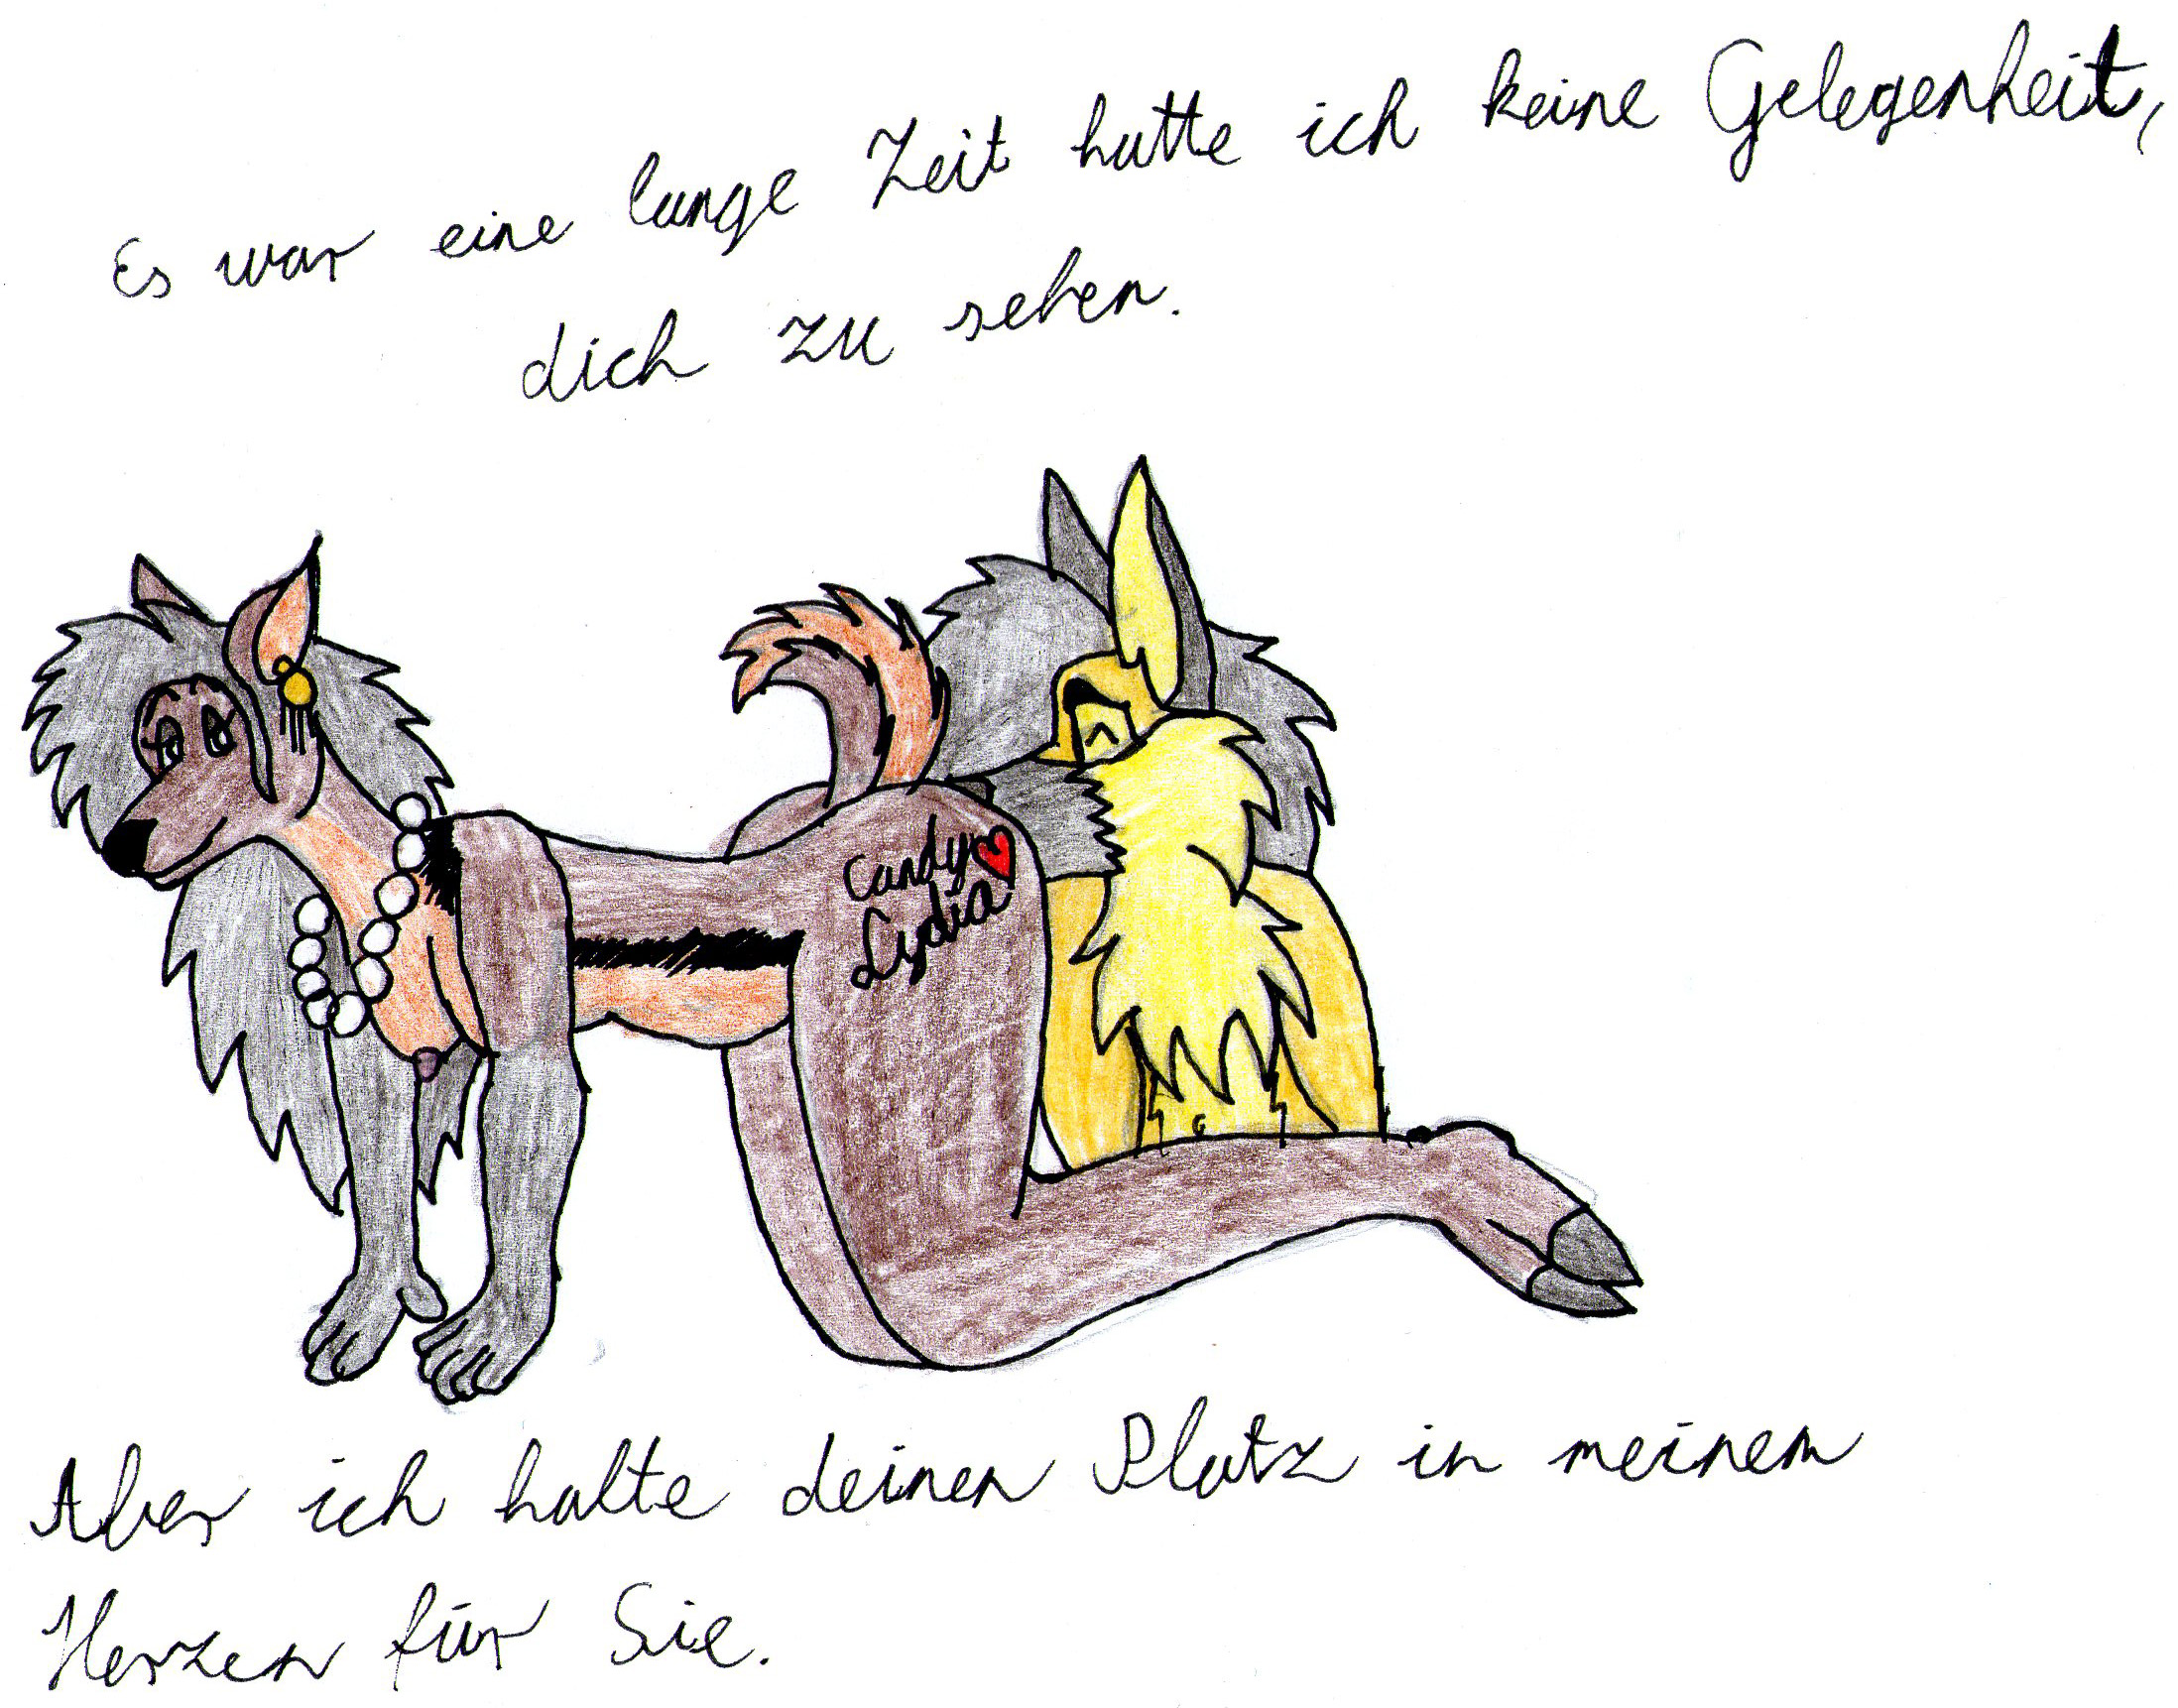 Es war eine lange Zeit hatte ich keine Gelegenheit,
dich zu sehen.
Candy
Lydia
Aber ich halte deinen Platz in meinem
Herzen für Sie.